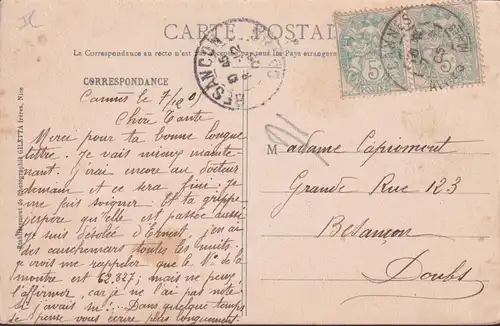 CARTE POSTALE
La Correspondance au recto n'est pas acceptée par tous les Pays étrangers
CORRESPONDANCE
Cannes le 7/12 05
Chère Tante
Merci pour ta bonne longue
lettre. Je vais mieux mainte-
nant. J'irai encore au docteur
demain et ce sera fini: Je
me fais soigner. Et ta grippe
j'espère qu'elle est passée aussi
Je suis désolée d'Ernest, j'en ai
des cauchemars toutes les nuits:
je crois me rappeler que le No de la
montre est 62,327; mais ne peux
l'affirmer, car je ne l'ai pas noté
Si j'avais su!... Dans quelque temps
je pense vous écrire plus longuement.
Madame Capremont
Grande Rue 123
Besançon
Doubs
Etablissement de Photographie GILETTA frères, Nice
BESANÇON
DOUBS
CANNES
5
5